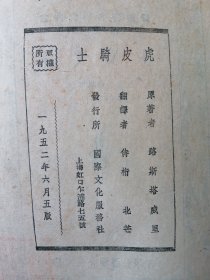 虎皮騎士
原著者 路斯塔威里
翻譯者 侍桁 北芒
發行所 國際文化服務社
上海虹口乍浦路七五號
版權所有
一九五二年六月五版